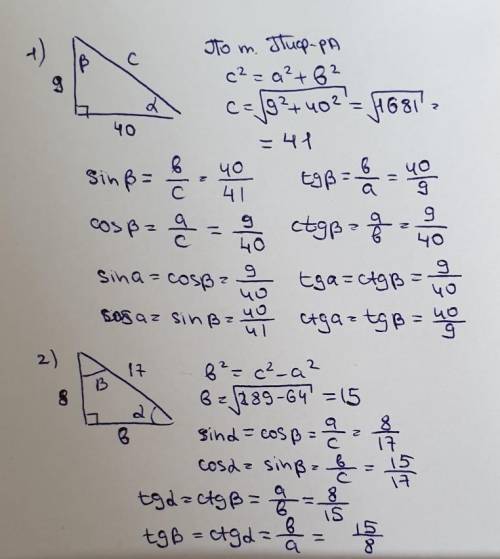 1)
По т. Пиф-рА
c² = a² + b²
c = √(9² + 40²) = √1681 =
= 41
9 β c α 40
sin β = b/c = 40/41 tg β = b/a = 40/9
cos β = a/c = 9/40 ctg β = a/b = 9/40
sin a = cos β = 9/40 tg a = ctg β = 9/40
cos a = sin β = 40/41 ctg a = tg β = 40/9
2)
8 β 17 α b
b² = c² - a²
b = √(289-64) = 15
sin α = cos β = a/c = 8/17
cos α = sin β = b/c = 15/17
tg α = ctg β = a/b = 8/15
tg β = ctg α = b/a = 15/8